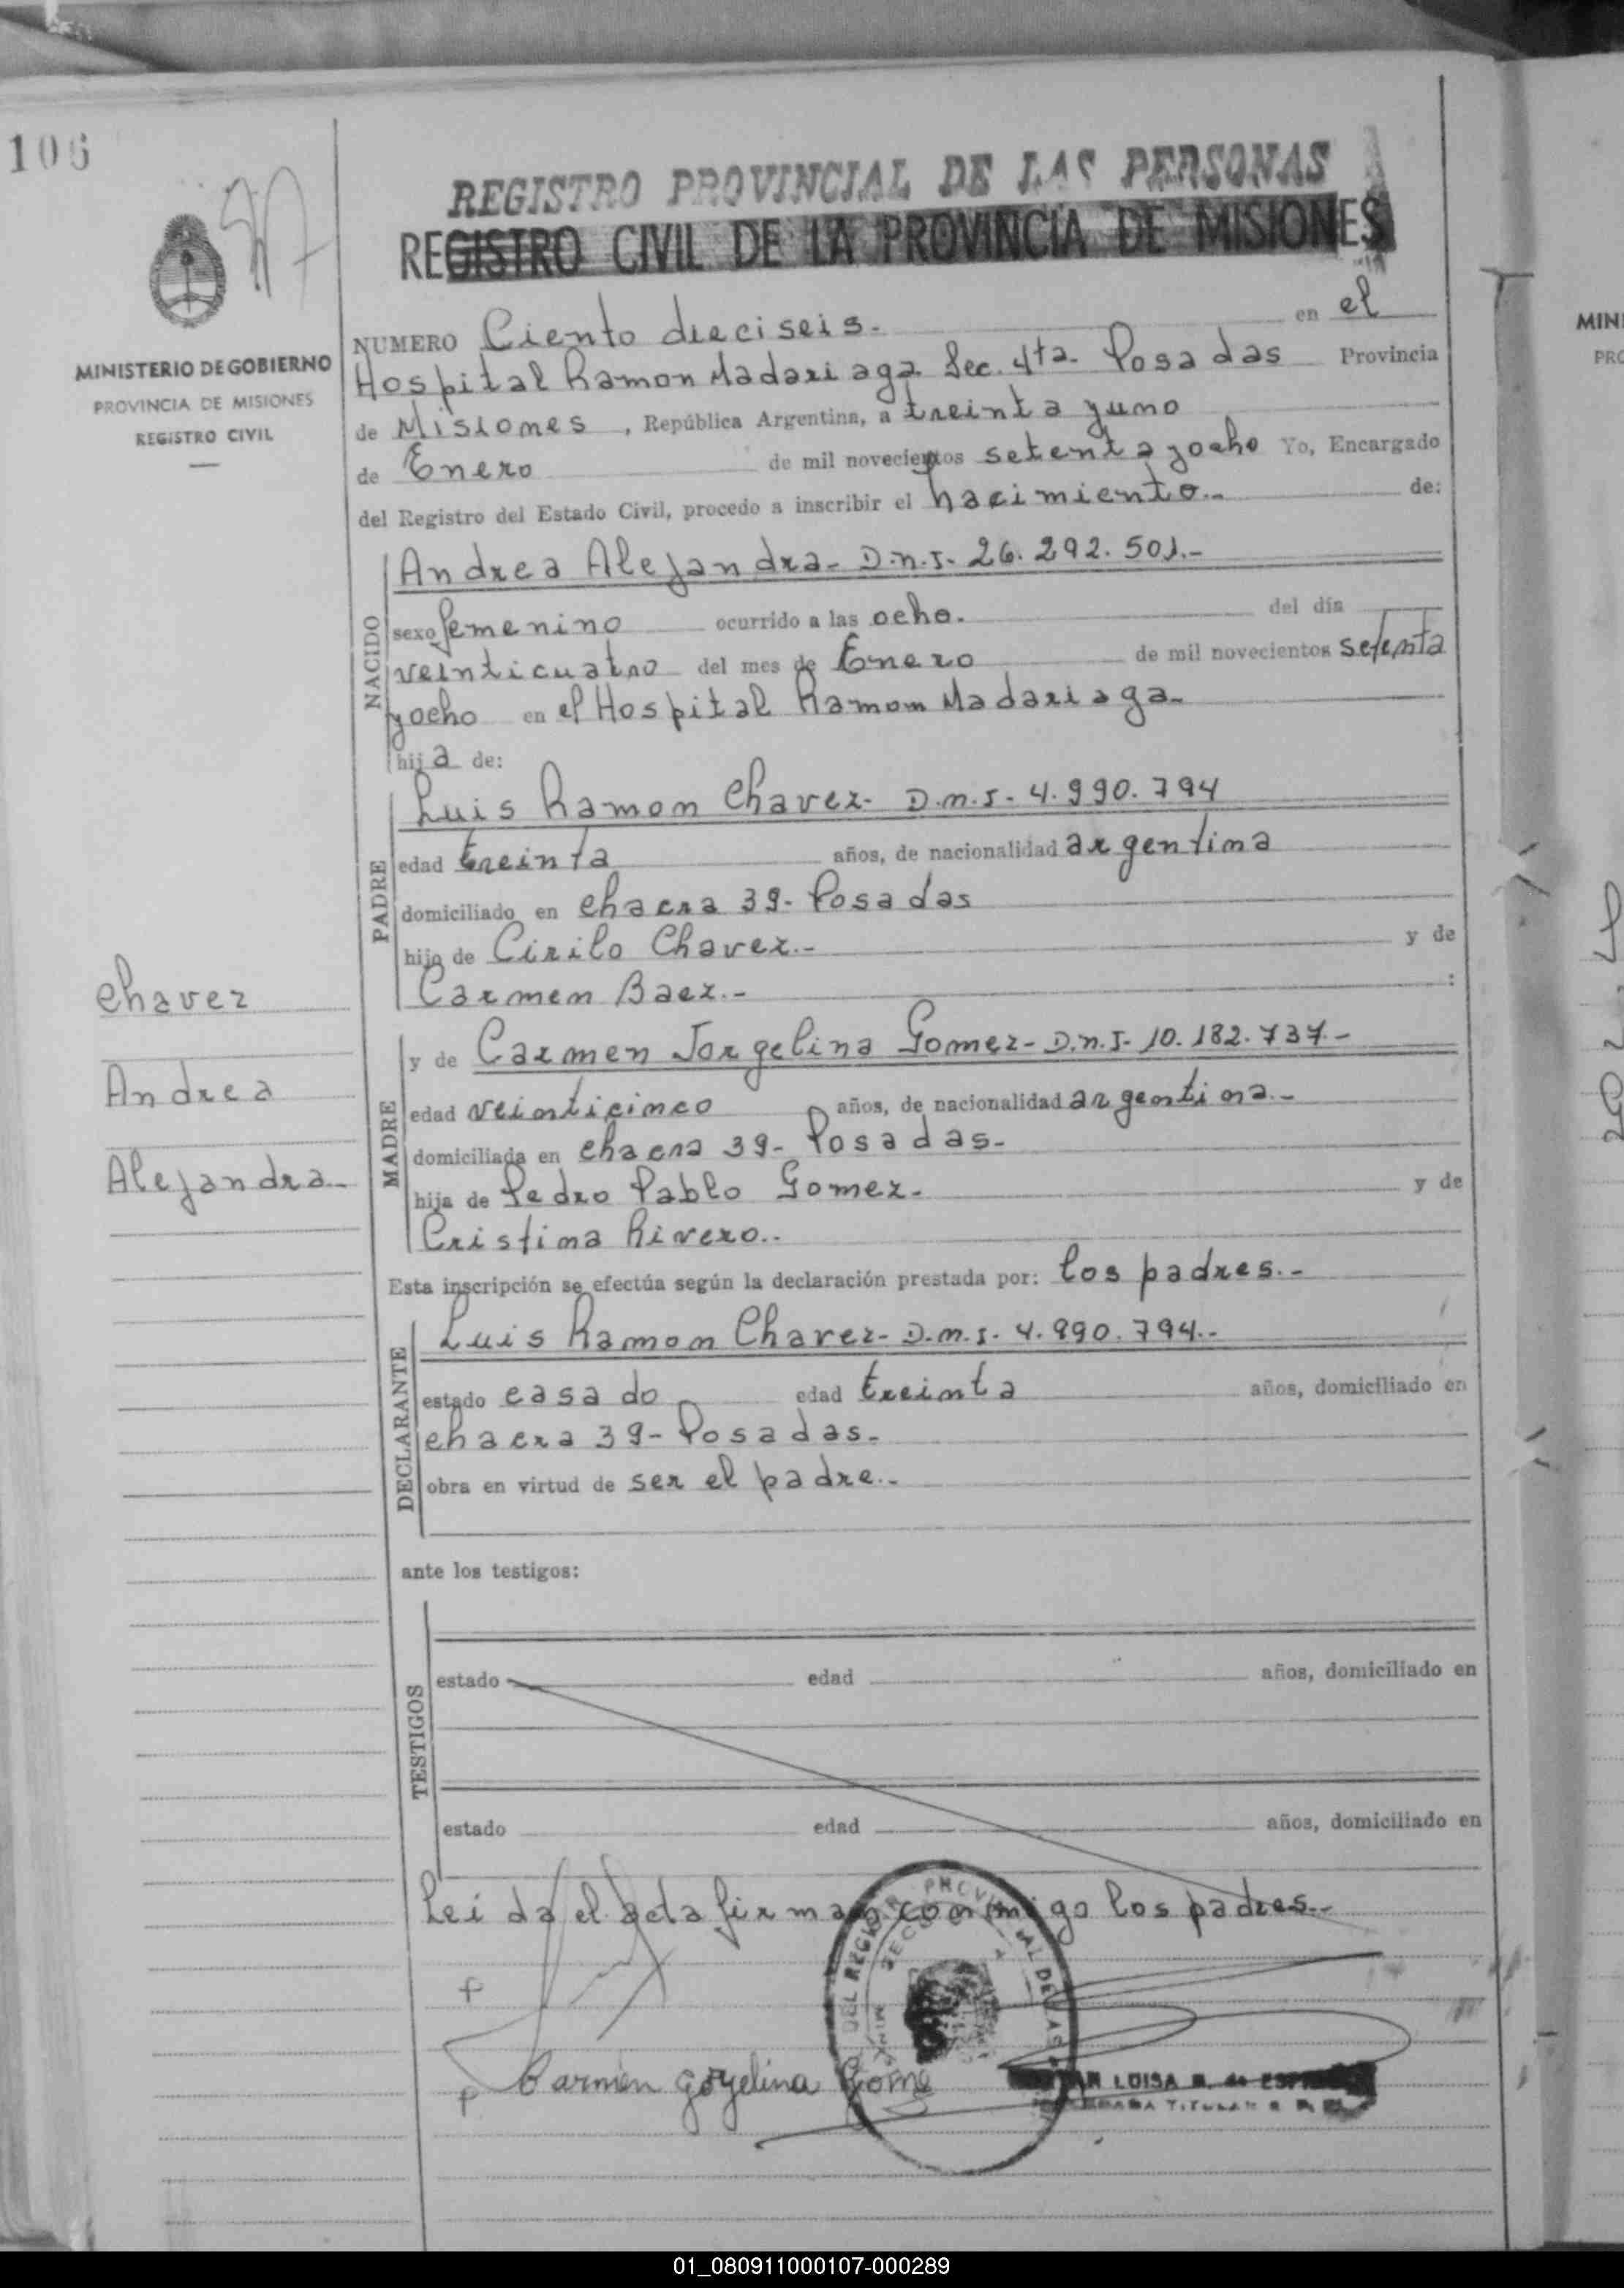 106
REGISTRO PROVINCIAL DE LAS PERSONAS
REGISTRO CIVIL DE LA PROVINCIA DE MISIONES
MINISTERIO DE GOBIERNO
PROVINCIA DE MISIONES
REGISTRO CIVIL
NUMERO Ciento dieciseis.- en el
Hospital Ramon Madariaga Sec. 4ta- Posadas Provincia
de Misiones, República Argentina, a treinta yuno
de Enero de mil novecientos setenta yocho Yo, Encargado
del Registro del Estado Civil, procedo a inscribir el nacimiento.- de:
NACIDO
Andrea Alejandra- D.n.I- 26.292.501.-
sexo femenino ocurrido a las ocho. del día
veinticuatro del mes de Enero de mil novecientos setenta
yocho en el Hospital Ramon Madariaga-
hija de:
PADRE
Luis Ramon Chavez- D.n.I- 4.990.794
edad treinta años, de nacionalidad argentina
domiciliado en chacra 39- Posadas
hijo de Cirilo Chavez.- y de
Carmen Baez.- :
Chavez
Andrea
Alejandra-
MADRE
y de Carmen Jorgelina Gomez- D.n.I- 10.182.737.-
edad veinticinco años, de nacionalidad argentina.-
domiciliada en chacra 39- Posadas-
hija de Pedro Pablo Gomez- y de
Cristina Rivero..
Esta inscripción se efectúa según la declaración prestada por: los padres.-
DECLARANTE
Luis Ramon Chavez- D.n.I- 4.990.794.-
estado casado edad treinta años, domiciliado en
chacra 39- Posadas-
obra en virtud de ser el padre.-
ante los testigos:
TESTIGOS
estado edad años, domiciliado en
estado edad años, domiciliado en
Leida el acta firman conmigo los padres.-
Carmen Gorgelina Gome
LUISA
TITULAR
01_080911000107-000289